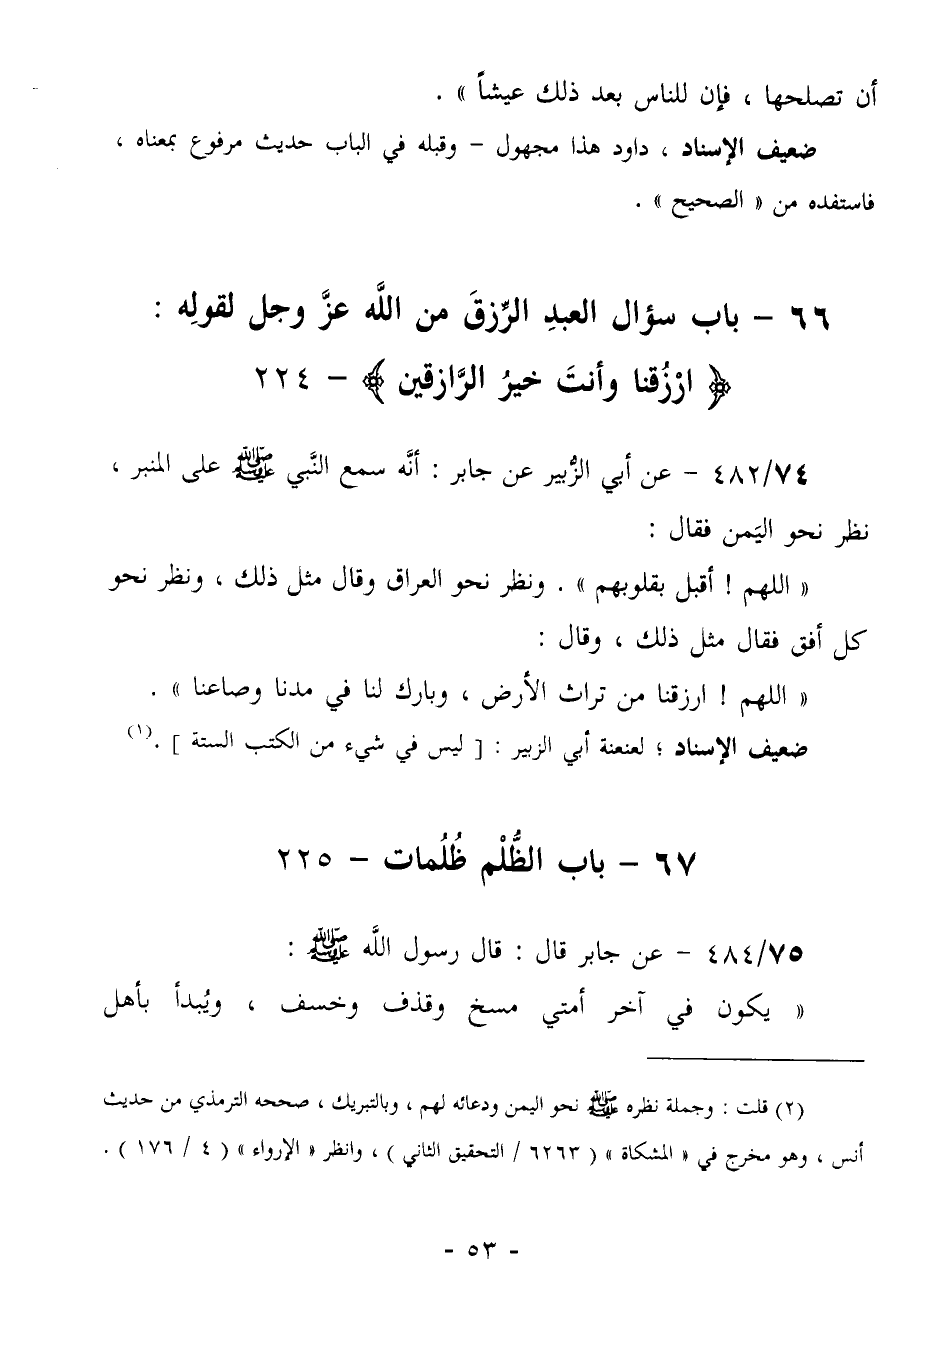 أن تصلحها ، فإن للناس بعد ذلك عيشاً » .
ضعيف الإسناد ، داود هذا مجهول – وقبله في الباب حديث مرفوع بمعناه ،
فاستفده من « الصحيح » .
٦٦ – باب سؤال العبدِ الرِّزقَ من اللَّه عزَّ وجل لقولِه :
﴿ ارْزُقنا وأنتَ خيرُ الرَّازقين ﴾ – ٢٢٤
٤٨٢/٧٤ – عن أبي الزُّبير عن جابر : أنَّه سمع النَّبي ﷺ على المنبر ،
نظر نحو اليَمن فقال :
« اللهم ! أقبل بقلوبهم » . ونظر نحو العراق وقال مثل ذلك ، ونظر نحو
كل أفق فقال مثل ذلك ، وقال :
« اللهم ! ارزقنا من تراث الأرض ، وبارك لنا في مدنا وصاعنا » .
ضعيف الإسناد ؛ لعنعنة أبي الزبير : [ ليس في شيء من الكتب الستة ] .(١)
٦٧ – باب الظُّلْم ظُلُمات – ٢٢٥
٤٨٤/٧٥ – عن جابر قال : قال رسول اللَّه ﷺ :
« يكون في آخر أمتي مسخ وقذف وخسف ، ويُبدأ بأهل
(٢) قلت : وجملة نظره ﷺ نحو اليمن ودعائه لهم ، وبالتبريك ، صححه الترمذي من حديث
أنس ، وهو مخرج في « المشكاة » ( ٦٢٦٣ / التحقيق الثاني ) ، وانظر « الإرواء » ( ٤ / ١٧٦ ) .
- ٥٣ -